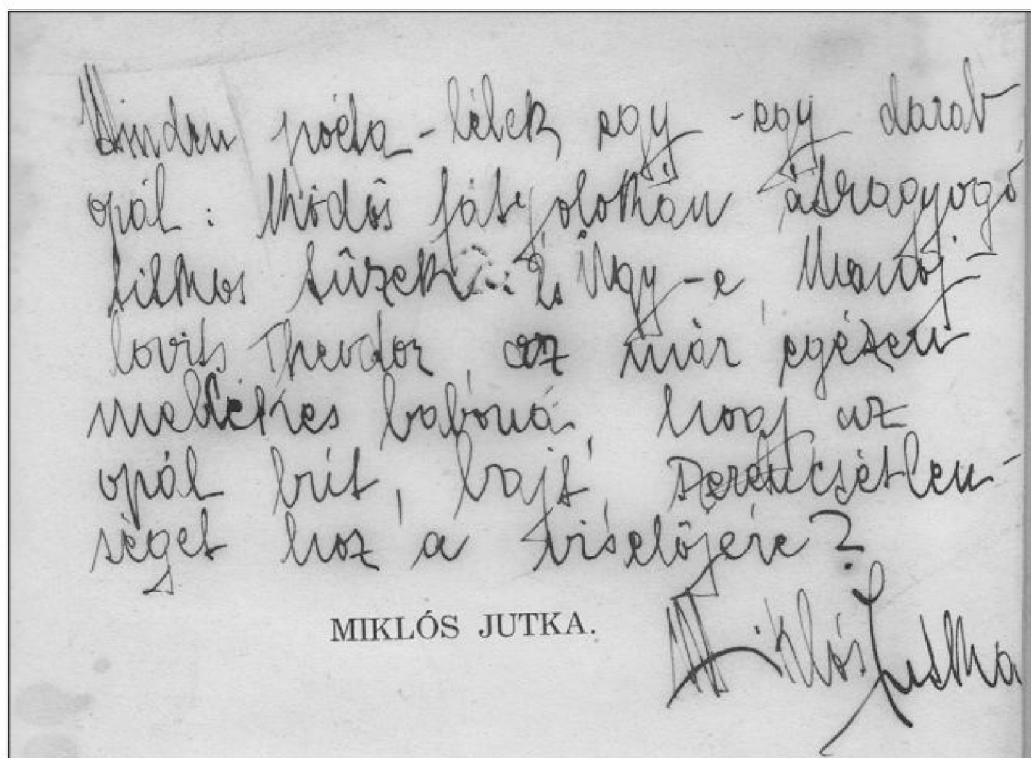 Minden poéta-lélek egy-egy darab
opál: ködös fátyolokban átragyogó
titkos tüzek. Úgy-e,
lovits Theodor, az már egészen
mellékes babona, hogy az
opál bút, bajt, szerencsétlen-
séget hoz a viselőjére?
MIKLÓS JUTKA.
Miklós Jutka